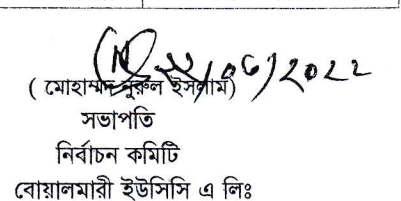 ২২/০৬/২০২২
( মোহাম্মদ নুরুল ইসলাম)
সভাপতি
নির্বাচন কমিটি
বোয়ালমারী ইউসিসি এ লিঃ